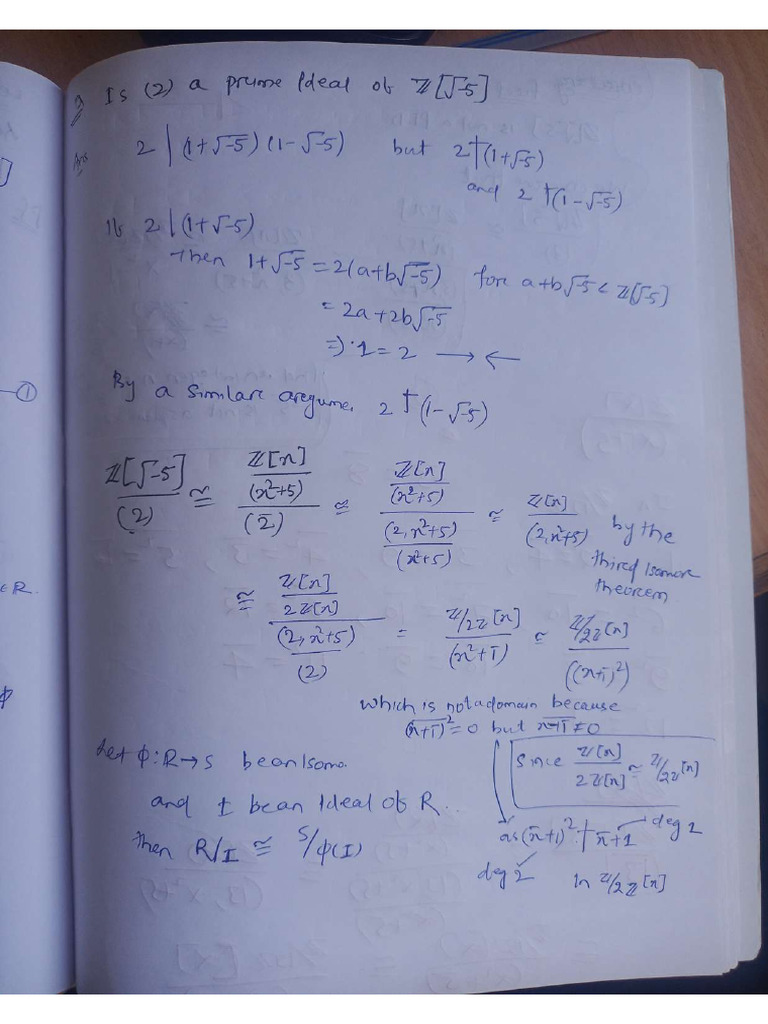 Is (2) a prime Ideal of ℤ[√-5]
Ans 2 | (1+√-5) (1-√-5) but 2∤(1+√-5)
and 2 ∤(1-√-5)
If 2 | (1+√-5)
then 1+√-5 = 2(a+b√-5) for a+b√-5 ∈ ℤ[√-5]
= 2a+2b√-5
=> 1=2 →←
By a similar 2 ∤ (1-√-5)
ℤ[√-5]/(2) ≅ (ℤ[x]/(x²+5))/(2̄) ≅ (ℤ[x]/(x²+5))/((2, x²+5)/(x²+5)) ≅ ℤ[x]/(2, x²+5) by the
third Isomor
theorem
≅ (ℤ[x]/2ℤ[x])/((2, x²+5)/(2)) = ℤ/2ℤ[x]/(x²+1̄) ≅ ℤ/2ℤ[x]/((x+1̄)²)
which is not a domain because
(x+1̄)² = 0 but x+1̄ ≠ 0
Let φ: R→S be an Isomo.
and I be an Ideal of R.
then R/I ≅ S/φ(I)
Since ℤ[x]/2ℤ[x] ≅ ℤ/2ℤ[x]
as (x̄+1)² ∤ x̄+1 deg 1
deg 2 In ℤ/2ℤ[x]
①
∈R.
φ